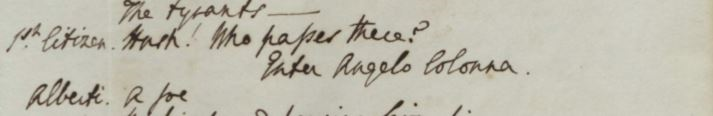 The tyrants —
1st. Citizen. Hush! Who passes there?
Enter Angelo Colonna.
Alberti. A foe